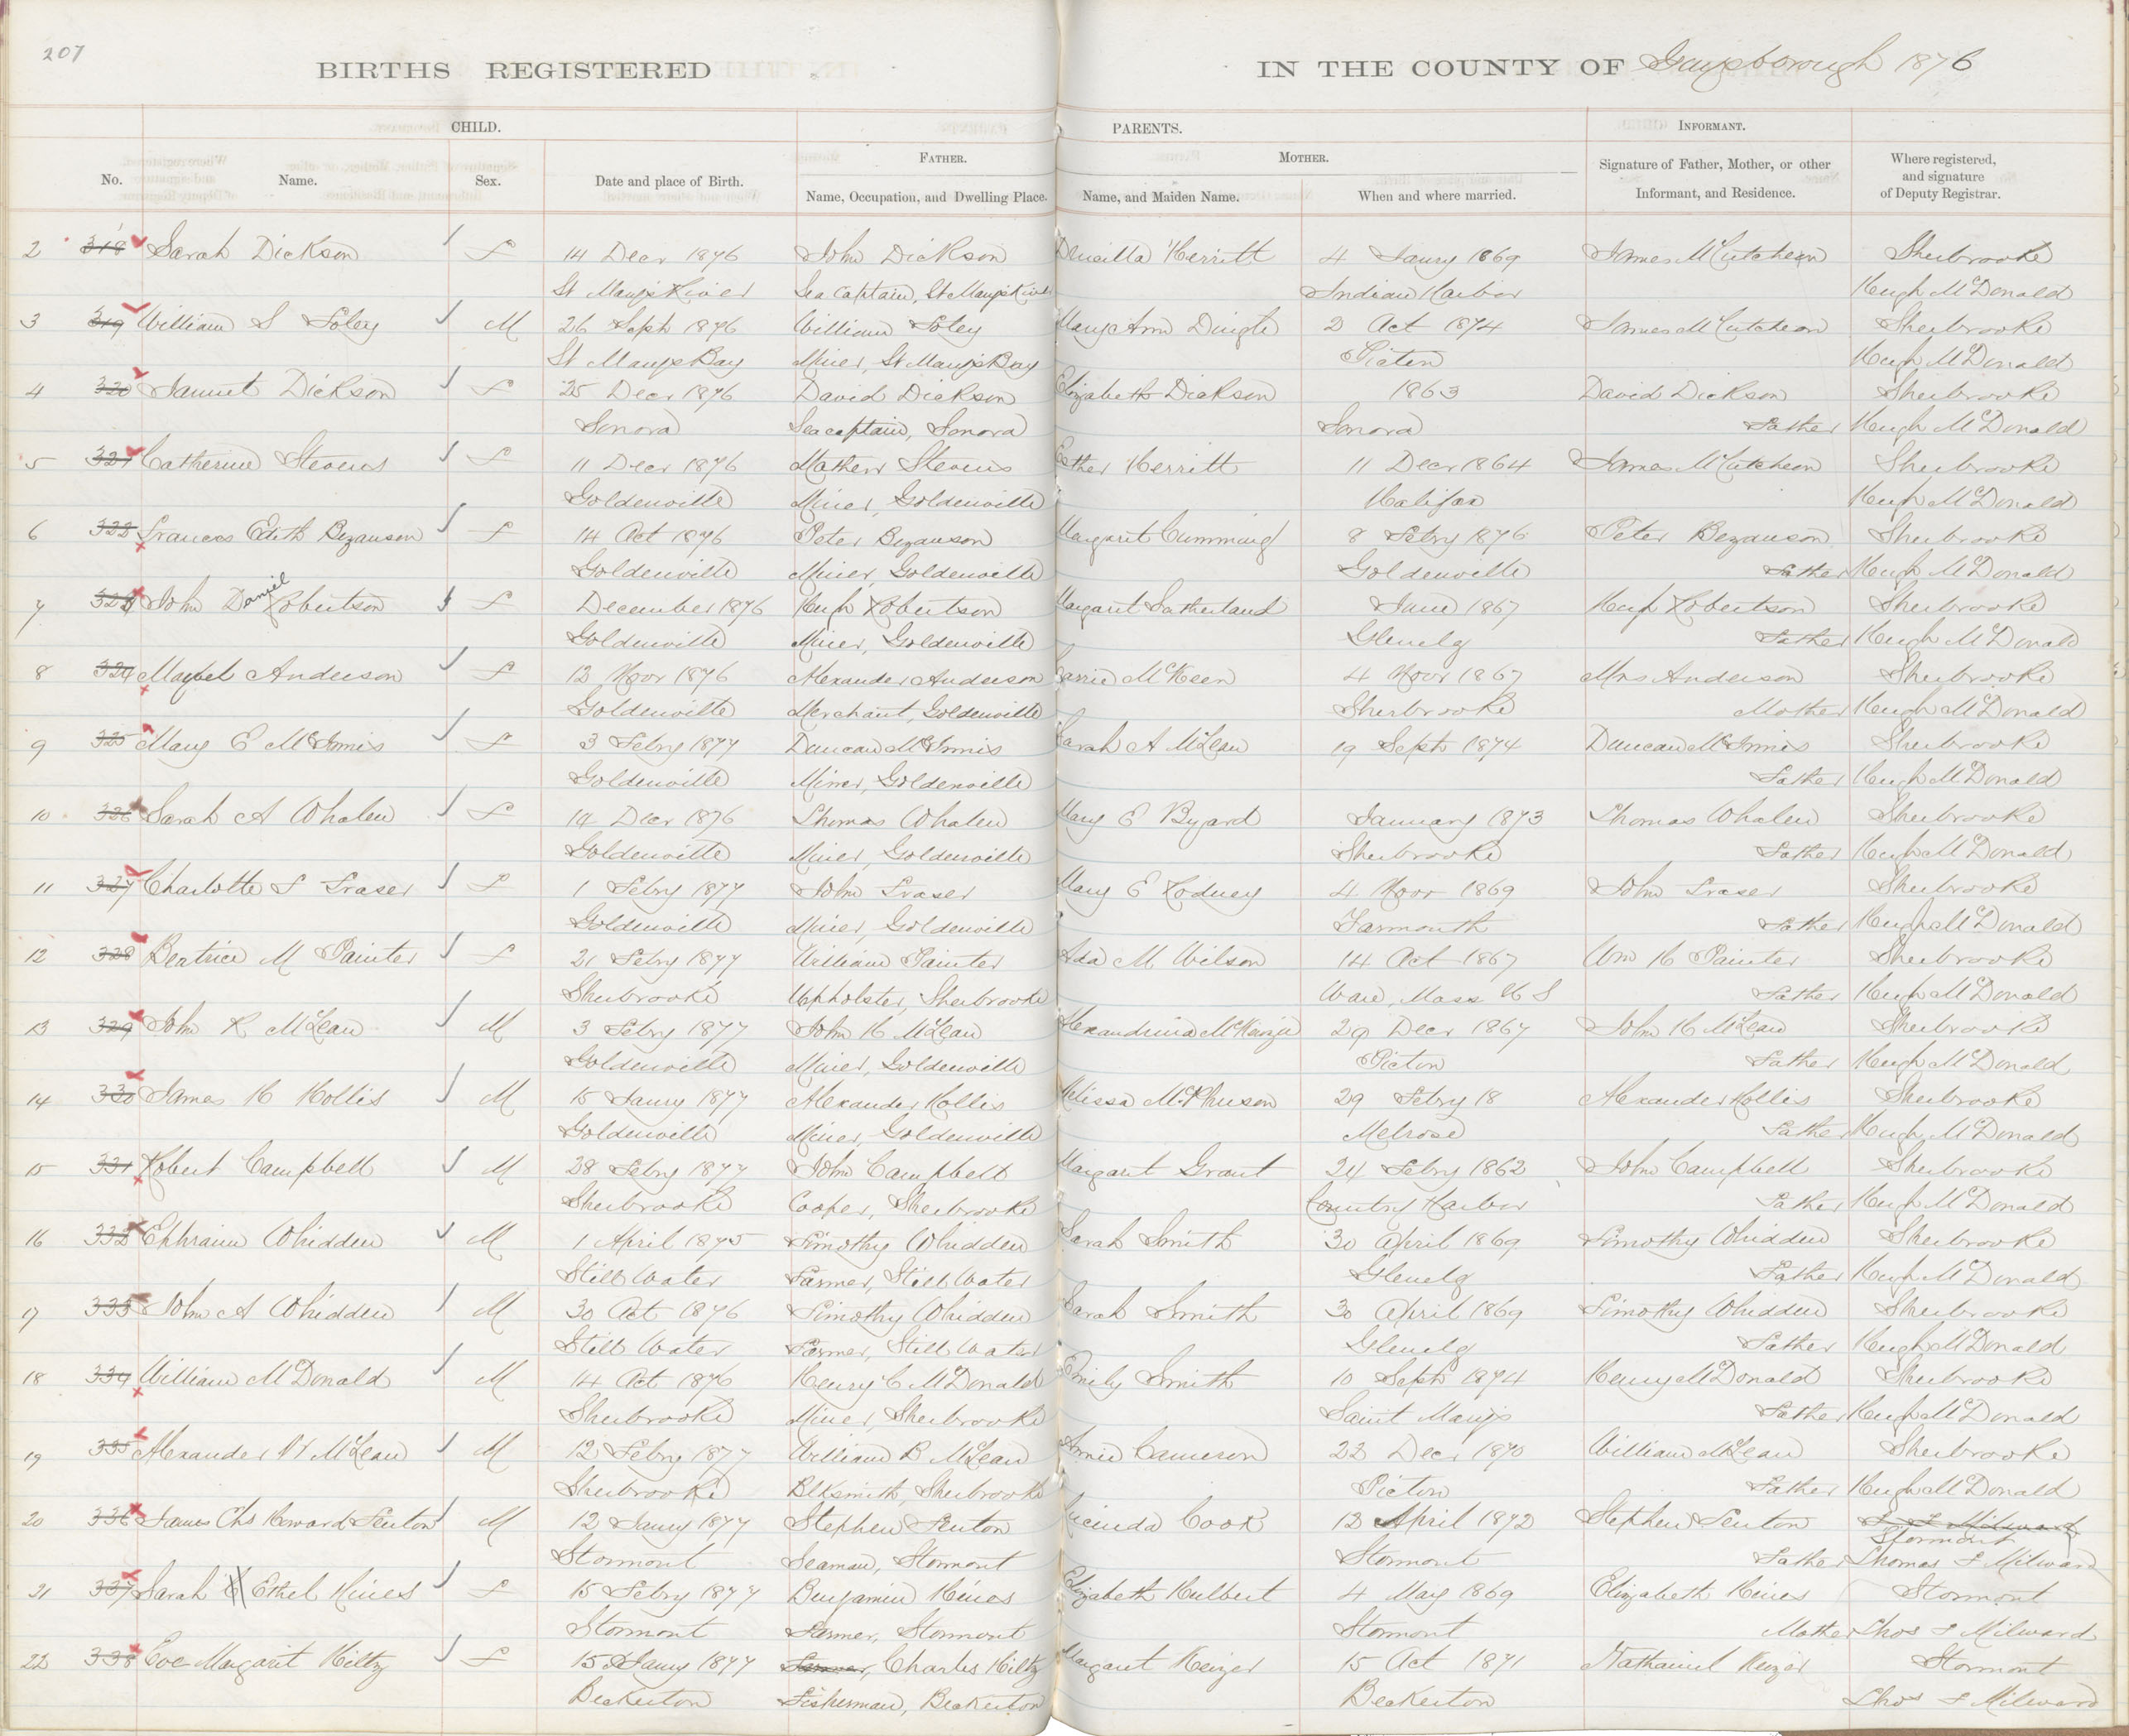 207
BIRTHS REGISTERED IN THE COUNTY OF Guysborough 1876
CHILD. PARENTS. INFORMANT.
No. Name. Sex. Date and place of Birth. FATHER. Name, Occupation, and Dwelling Place. MOTHER. Name, and Maiden Name. When and where married. Signature of Father, Mother, or other Informant, and Residence. Where registered, and signature of Deputy Registrar.
2 318 Sarah Dickson f 14 Decr 1876 John Dickson Merritt 4 Jauny 1869 James McCutcheon Sherbrooke
St Mary's River Sea Captain, St Mary's River Indian Harbor Hugh McDonald
3 319 William S Foley M 26 Sept 1876 William Foley Mary Ann Dingle 2 Oct 1874 James McCutcheon Sherbrooke
St Mary's Bay Miner, St Mary's Bay Picton Hugh McDonald
4 320 Dickson f 25 Decr 1876 David Dickson Elizabeth Dickson 1863 David Dickson Sherbrooke
Sonora Sea captain, Sonora Sonora Father Hugh McDonald
5 321 Catherine Stevens f 11 Decr 1876 Mathew Stevens Esther Merritt 11 Decr 1864 James McCutcheon Sherbrooke
Goldenville Miner, Goldenville Halifax Hugh McDonald
6 322 Frances Edith Bezanson f 14 Oct 1876 Peter Bezanson Margaret Cumming 8 Febry 1876 Peter Bezanson Sherbrooke
Goldenville Miner, Goldenville Goldenville Father Hugh McDonald
7 323 John Daniel Robertson f December 1876 Hugh Robertson Margaret Sutherland June 1867 Hugh Robertson Sherbrooke
Goldenville Miner, Goldenville Glenelg Father Hugh McDonald
8 324 Anderson f 12 Novr 1876 Alexander Anderson McKeen 4 Novr 1867 Mrs Anderson Sherbrooke
Goldenville Merchant, Goldenville Sherbrooke Mother Hugh McDonald
9 325 Mary E McInnis f 3 Febry 1877 Duncan McInnis Sarah A McLean 19 Sept 1874 Duncan McInnis Sherbrooke
Goldenville Miner, Goldenville Father Hugh McDonald
10 326 Sarah A Whalen f 14 Decr 1876 Thomas Whalen Mary E Byard January 1873 Thomas Whalen Sherbrooke
Goldenville Miner, Goldenville Sherbrooke Father Hugh McDonald
11 327 Charlotte F Fraser f 1 Febry 1877 John Fraser Mary E Rodney 4 Novr 1869 John Fraser Sherbrooke
Goldenville Miner, Goldenville Yarmouth Father Hugh McDonald
12 328 Beatrice M Painter f 21 Febry 1877 William Painter Ada M Wilson 14 Oct 1867 Wm H Painter Sherbrooke
Sherbrooke Upholster, Sherbrooke Ware, Mass U S Father Hugh McDonald
13 329 John R McLean M 3 Febry 1877 John H McLean Alexandrina McKenzie 29 Decr 1867 John H McLean Sherbrooke
Goldenville Miner, Goldenville Picton Father Hugh McDonald
14 330 James H Hollis M 15 Jauny 1877 Alexander Hollis Melissa McPherson 29 Febry 18 Alexander Hollis Sherbrooke
Goldenville Miner, Goldenville Melrose Father Hugh McDonald
15 331 Robert Campbell M 28 Febry 1877 John Campbell Margaret Grant 24 Febry 1862 John Campbell Sherbrooke
Sherbrooke Cooper, Sherbrooke Country Harbor Father Hugh McDonald
16 332 Ephraim Whidden M 1 April 1875 Timothy Whidden Sarah Smith 30 April 1869 Timothy Whidden Sherbrooke
Still Water Farmer, Still Water Glenelg Father Hugh McDonald
17 333 John A Whidden M 30 Oct 1876 Timothy Whidden Sarah Smith 30 April 1869 Timothy Whidden Sherbrooke
Still Water Farmer, Still Water Glenelg Father Hugh McDonald
18 334 William McDonald M 14 Oct 1876 Henry C McDonald Emily Smith 10 Sept 1874 Henry McDonald Sherbrooke
Sherbrooke Miner, Sherbrooke Saint Mary's Father Hugh McDonald
19 335 Alexander McLean M 12 Febry 1877 William B McLean Annie Cameron 22 Decr 1870 William McLean Sherbrooke
Sherbrooke Blksmith, Sherbrooke Picton Father Hugh McDonald
20 336 James Chs Howard Fenton M 12 Jauny 1877 Stephen Fenton Lucinda Cook 12 April 1872 Stephen Fenton Stormont
Stormont Seaman, Stormont Stormont Father Thomas F Milward
21 337 Sarah Ethel Hines f 15 Febry 1877 Benjamin Hines Elizabeth Hulbert 4 May 1869 Elizabeth Hines Stormont
Stormont Farmer, Stormont Stormont Mother Thos F Milward
22 338 Eve Margaret Hiltz f 15 Jauny 1877 Farmer, Charles Hiltz Margaret Keizer 15 Oct 1871 Nathaniel Keizer Stormont
Beckerton Fisherman, Beckerton Beckerton Thos F Milward